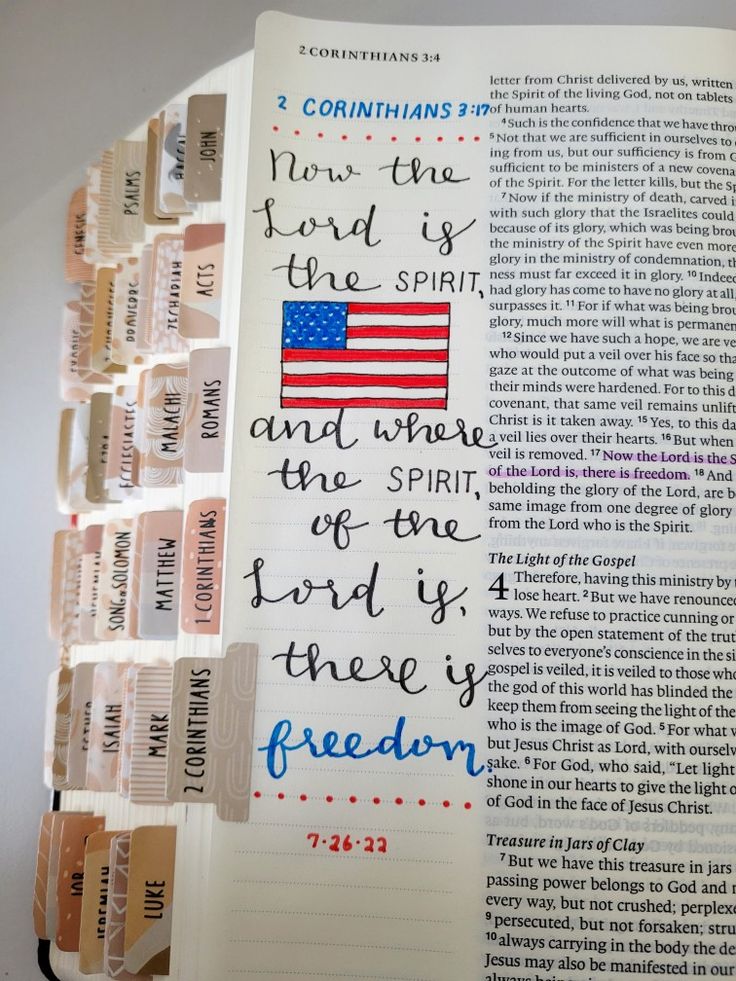 2 CORINTHIANS 3:4
2 CORINTHIANS 3:17
Now the
Lord is
the SPIRIT,
and where
the SPIRIT,
of the
Lord is,
there is
freedom.
7·26·22
letter from Christ delivered by us, written
the Spirit of the living God, not on tablets
of human hearts.
4 Such is the confidence that we have
5 Not that we are sufficient in ourselves to
ing from us, but our sufficiency is from
sufficient to be ministers of a new
of the Spirit. For the letter kills, but the
7 Now if the ministry of death, carved
with such glory that the Israelites could
because of its glory, which was being
the ministry of the Spirit have even more
glory in the ministry of condemnation,
ness must far exceed it in glory. 10 Indeed
had glory has come to have no glory at all,
surpasses it. 11 For if what was being
glory, much more will what is permanent
12 Since we have such a hope, we are
who would put a veil over his face so
gaze at the outcome of what was being
their minds were hardened. For to this
covenant, that same veil remains
Christ is it taken away. 15 Yes, to this
a veil lies over their hearts. 16 But when
veil is removed. 17 Now the Lord is the
of the Lord is, there is freedom. 18 And
beholding the glory of the Lord, are
same image from one degree of glory
from the Lord who is the Spirit.
The Light of the Gospel
4 Therefore, having this ministry by
lose heart. 2 But we have renounced
ways. We refuse to practice cunning or
but by the open statement of the
selves to everyone's conscience in the
gospel is veiled, it is veiled to those
the god of this world has blinded the
keep them from seeing the light of the
who is the image of God. 5 For what
but Jesus Christ as Lord, with
sake. 6 For God, who said, “Let light
shone in our hearts to give the light
of God in the face of Jesus Christ.
Treasure in Jars of Clay
7 But we have this treasure in jars
passing power belongs to God and
every way, but not crushed;
9 persecuted, but not forsaken;
10 always carrying in the body the
Jesus may also be manifested in our
GENESIS
PSALMS
HAGGAI
JOHN
EXODUS
2 CHRONICLES
PROVERBS
ZECHARIAH
ACTS
EZRA
ECCLESIASTES
MALACHI
ROMANS
NEHEMIAH
SONG of SOLOMON
MATTHEW
1 CORINTHIANS
ESTHER
ISAIAH
MARK
2 CORINTHIANS
JOB
JEREMIAH
LUKE